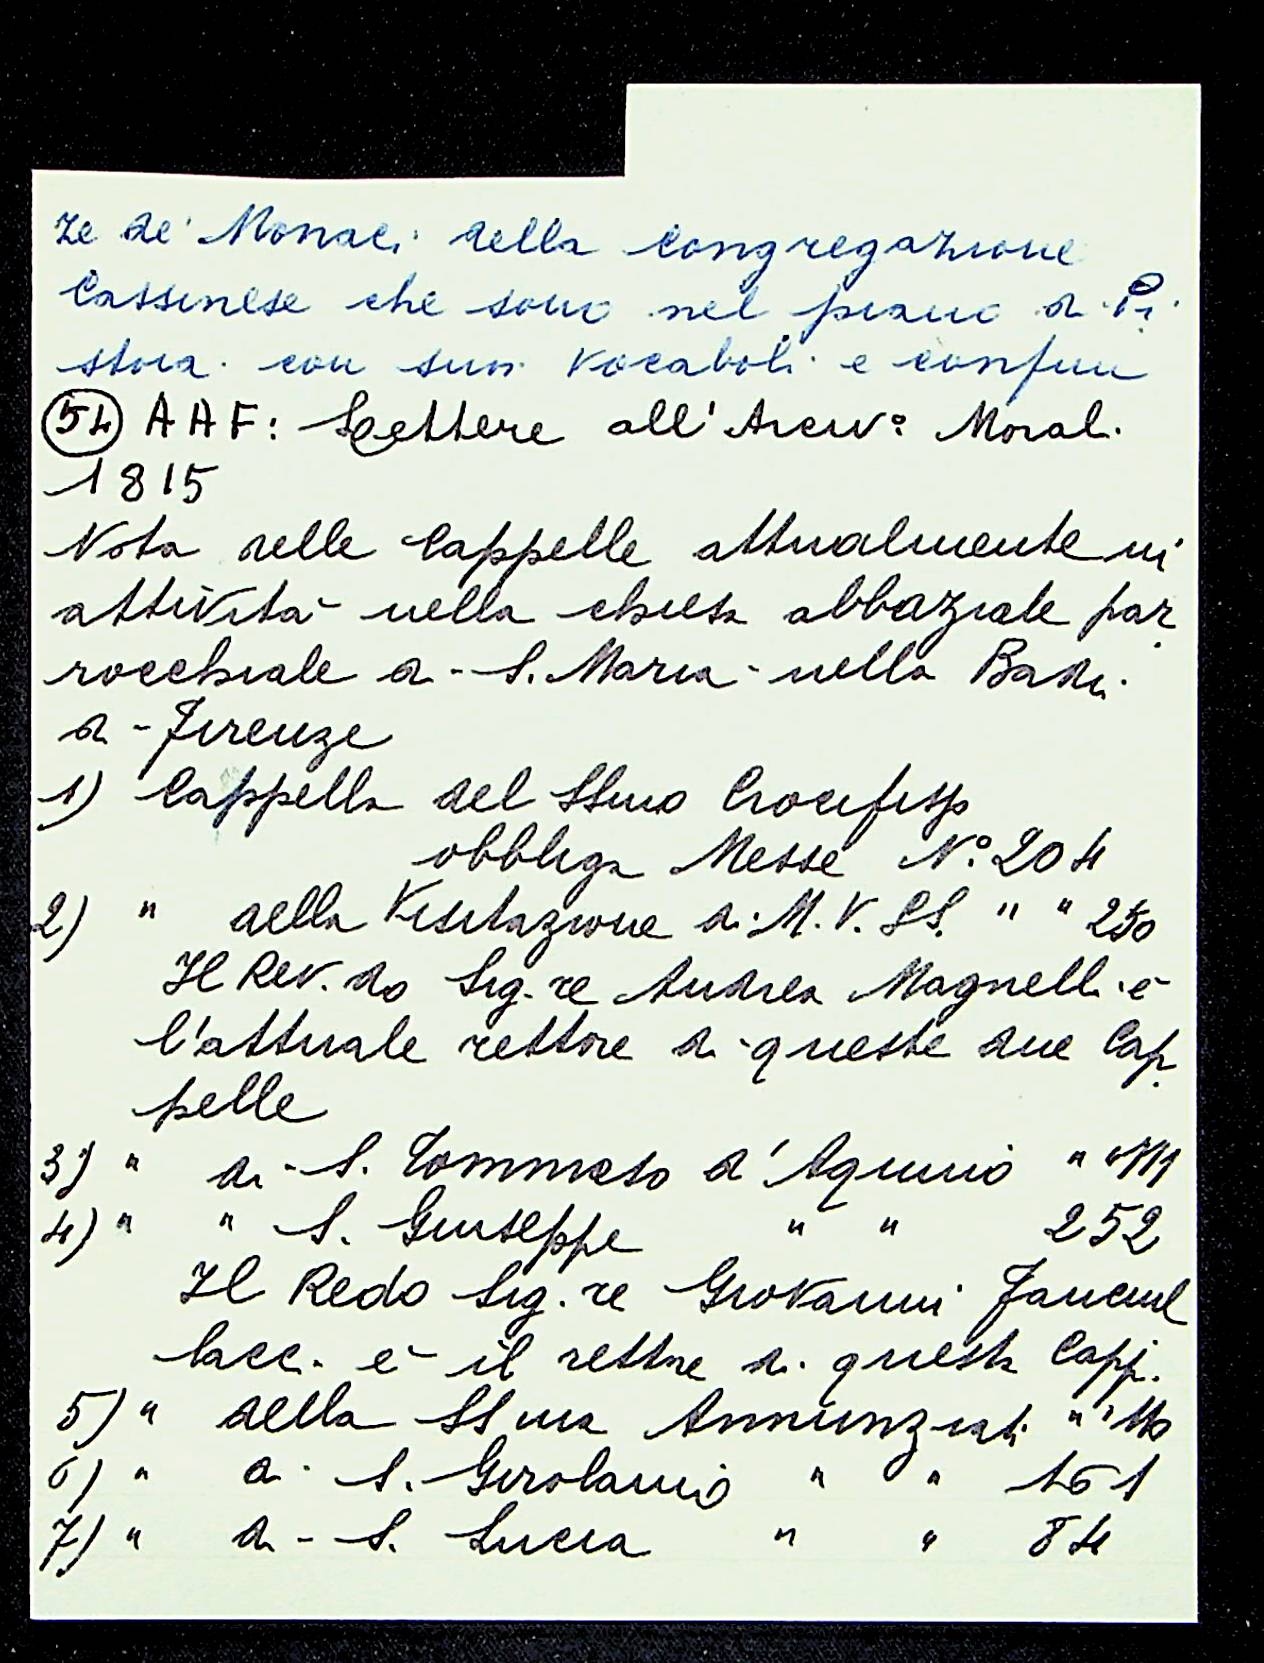 ze de' Monaci della Congregazione
Cassinese che sono nel piano di Pi
stoia con suoi vocaboli e confini
54 AAF: Lettere all'Arciv:o Moral.
1815
Nota delle Cappelle attualmente in
attività nella chiesa abbaziale par
rocchiale di S. Maria nella Badia
di Firenze
1) Cappella del SSmo Crocifisso
obbliga Messe N.o 204
2) " della Visitazione di M.V. SS. " " 250
Il Rev.do Sig.re Andrea Magnelli è
l'attuale rettore di queste due Cap
pelle
3) " di S. Tommaso d'Aquino " "
4) " " S. Giuseppe " " 252
Il Redo Sig.re Giovanni Fanciul
lacci è il rettore di questa Capp.
5) " della SSma Annunziata " "
6) " di S. Girolamo " " 161
7) " di S. Lucia " " 84